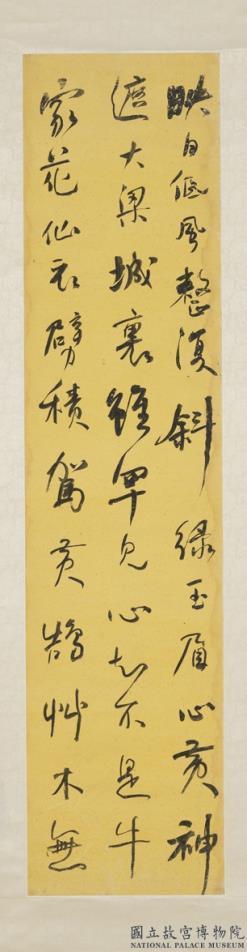 映日低風整復斜綠玉眉心黃袖
遮大梁城裏雖罕見心知不是牛
家花仙衣襞積駕黃鵠艸木無
國立故宮博物院
NATIONAL PALACE MUSEUM